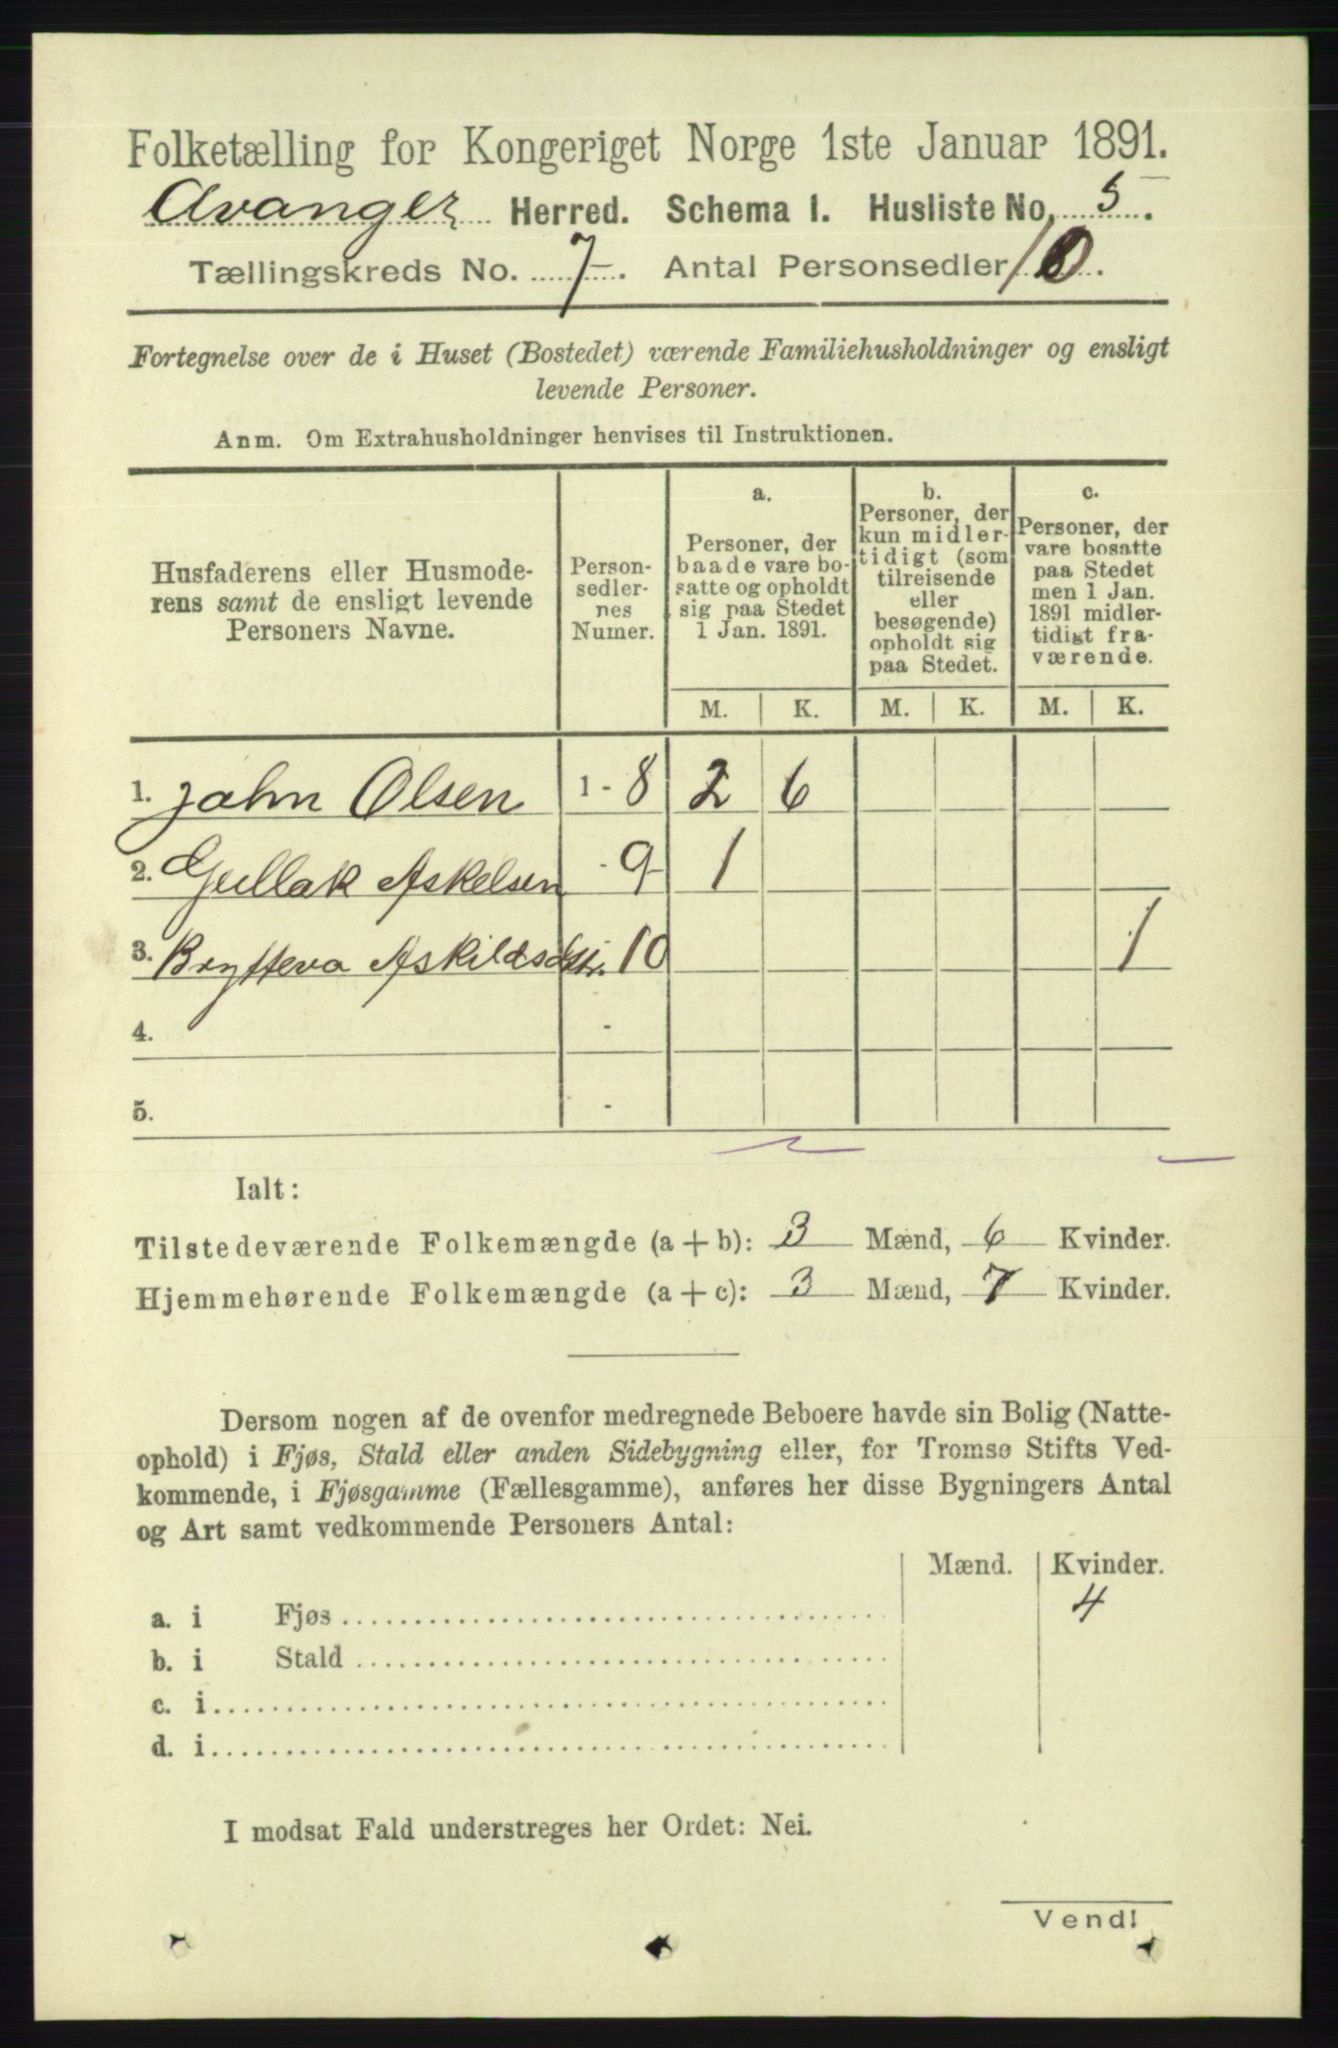 Folketælling for Kongeriget Norge 1ste Januar 1891.
Avanger Herred. Schema I. Husliste No. 5.
Tællingskreds No. 7. Antal Personsedler 10.
Fortegnelse over de i Huset (Bostedet) værende Familiehusholdninger og ensligt
levende Personer.
Anm. Om Extrahusholdninger henvises til Instruktionen.
Husfaderens eller Husmode-
rens samt de ensligt levende
Personers Navne.
Person-
sedler-
nes
Numer.
a.
Personer, der
baade vare bo-
satte og opholdt
sig paa Stedet
1 Jan. 1891.
b.
Personer, der
kun midler-
tidigt (som
tilreisende
eller
besøgende)
opholdt sig
paa Stedet.
c.
Personer, der
vare bosatte
paa Stedet
men 1 Jan.
1891 midler-
tidigt fra-
værende.
M. K. M. K. M. K.
1. John Olsen 1 - 8 2 6
2. Gullak Askelsen - 9 1
3. Brytteva Askildsdtr. 10 1
4. -
5. -
Ialt:
Tilstedeværende Folkemængde (a + b): 3 Mænd, 6 Kvinder.
Hjemmehørende Folkemængde (a + c): 3 Mænd, 7 Kvinder.
Dersom nogen af de ovenfor medregnede Beboere havde sin Bolig (Natte-
ophold) i Fjøs, Stald eller anden Sidebygning eller, for Tromsø Stifts Ved-
kommende, i Fjøsgamme (Fællesgamme), anføres her disse Bygningers Antal
og Art samt vedkommende Personers Antal:
Mænd. Kvinder.
a. i Fjøs 4
b. i Stald
c. i
d. i
I modsat Fald understreges her Ordet: Nei.
Vend!